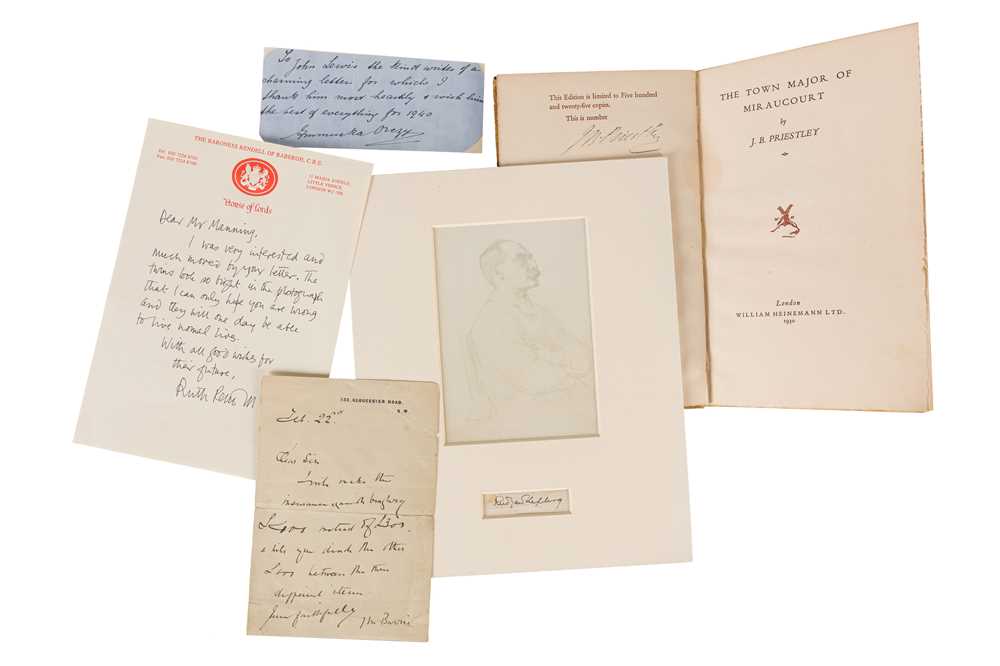 To
John Lewis the kind writer of a
charming letter for which I
thank him most heartily & wish him
the best of everything for 1940
Emmuska Orczy
THE BARONESS RENDELL OF BABERGH, C.B.E.
11 MAIDA AVENUE,
LITTLE VENICE,
LONDON W2
House of Lords
Dear Mr Manning,
I was very interested and
much moved by your letter. The
twins look so bright in the photograph
that I can only hope you are wrong
and they will one day be able
to live normal lives.
With all good wishes for
their future,
Ruth
This Edition is limited to Five hundred
and twenty-five copies.
This is number
J B Priestley
THE TOWN MAJOR OF
MIRAUCOURT
by
J. B. PRIESTLEY
London
WILLIAM HEINEMANN LTD.
1930
GLOUCESTER ROAD,
S.W.
Feb. 22nd
Dear Sir
make the
instead of
& will you divide the other
between the three
different items
Yours faithfully
J M Barrie
Rudyard Kipling